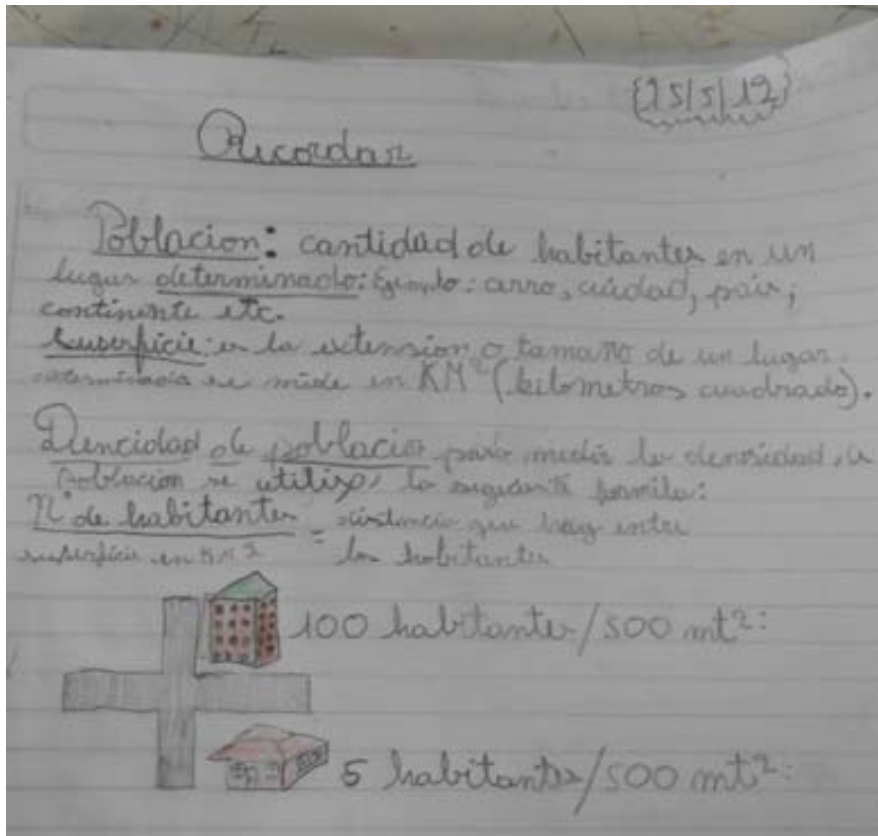 {15/5/12}
Recordar
Poblacion: cantidad de habitantes en un
lugar determinado: Ejemplo: carro, ciudad, pais,
continente etc.
Superficie: es la extension o tamaño de un lugar.
se mide en KM² (kilometros cuadrado).
Dencidad de poblacion para medir la densidad, de
Poblacion se utiliza, la siguiente formula:
N° de habitantes = distancia que hay entre
superficie en KM2 los habitantes
100 habitantes/500 mt²:
5 habitantes/500 mt²: